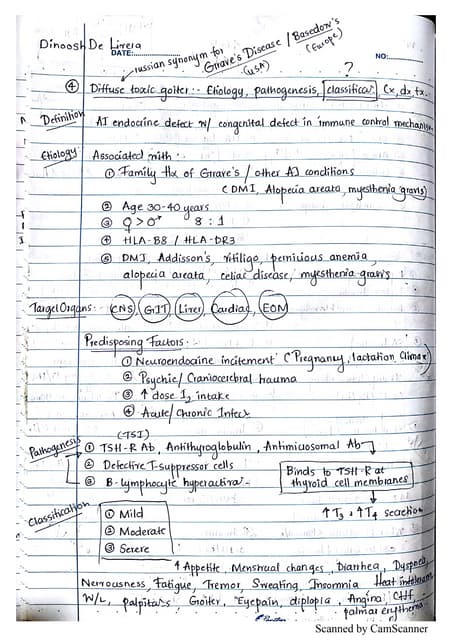 Dinoosh De Livera
DATE:
russian synonym for
Grave's Disease / Basedow's
(USA) (Europe)
NO:
?
④ Diffuse toxic goiter:- Etiology, pathogenesis, classificat, Cx, dx, tx.
Definition AI endocrine defect w/ congenital defect in immune control mechanism
Etiology: Associated with:
① Family Hx of Grave's / other AI conditions
(DMI, Alopecia areata, myesthenia gravis)
② Age 30-40 years
③ ♀ > ♂ 8 : 1
④ HLA-B8 / HLA-DR3
⑤ DMI, Addison's, vitiligo, pernicious anemia,
alopecia areata, celiac disease, myesthenia gravis
Target Organs: CNS, GIT, Liver, Cardiac, EOM
Predisposing Factors:
① Neuroendocrine incitement (Pregnancy, lactation Climax)
② Psychic/ Craniocerebral trauma
③ ↑ dose I₂ intake
④ Acute/ Chronic Infecⁿ
(TSI)
Pathogenesis ① TSH-R Ab, Antithyroglobulin, Antimicrosomal Ab
② Defective T-suppressor cells
③ B-lymphocyte hyperactivaⁿ
Binds to TSH-R at
thyroid cell membranes
↑T₃, ↑T₄ secretion
Classification ① Mild
② Moderate
③ Severe
↑ Appetite, Menstrual changes, Diarrhea,
Nervousness, Fatigue, Tremor, Sweating, Insomnia Heat
W/L, Goiter, Eyepain, diplopia, Angina, CHF
palmar erythema
Scanned by CamScanner